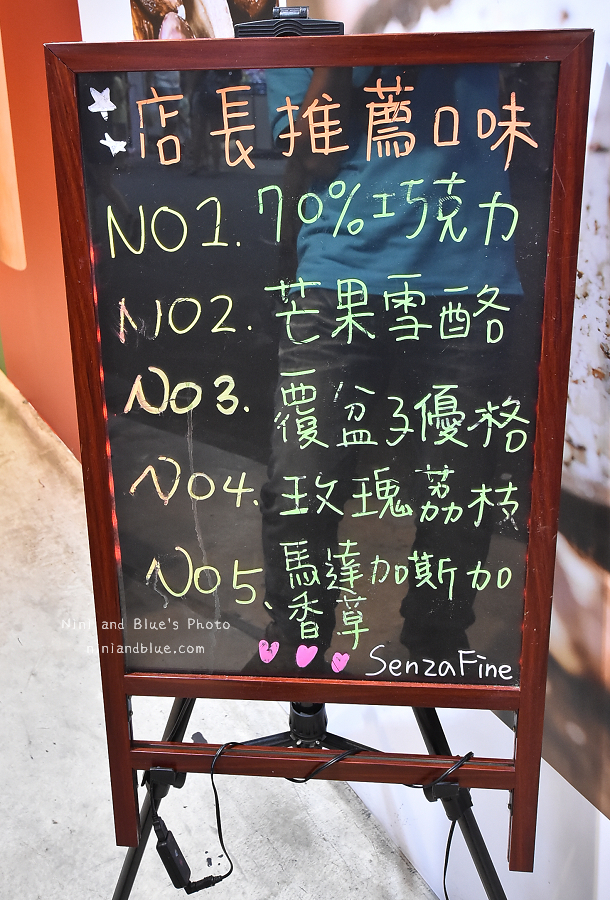 店長推薦口味
NO1. 70%巧克力
NO2. 芒果雪酪
NO3. 覆盆子優格
NO4. 玫瑰荔枝
NO5. 馬達加斯加
香草
Nini and Blue's Photo
niniandblue.com
SenzaFine